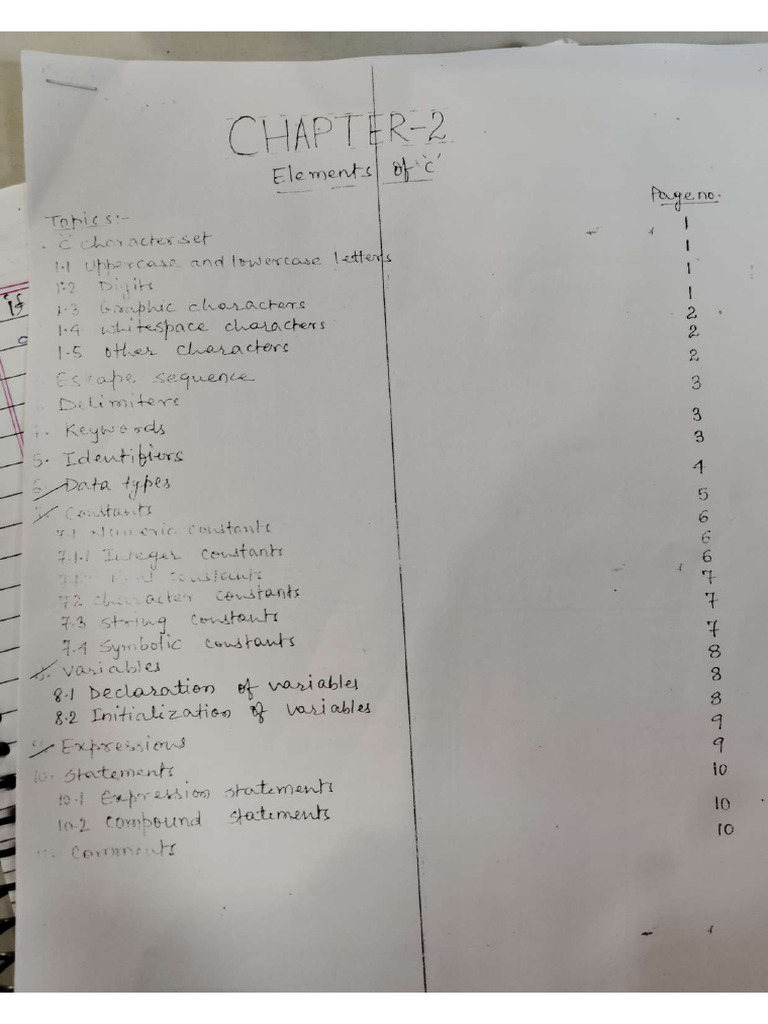 CHAPTER-2
Elements of 'C'
Page no.
Topics:-
C character set 1
1.1 Uppercase and lowercase letters 1
1.2 Digits 1
1.3 Graphic characters 1
1.4 Whitespace characters 2
1.5 Other characters 2
Escape sequence 2
Delimiters 3
Keywords 3
5. Identifiers 3
6. Data types 4
7. Constants 5
7.1 Numeric constants 6
7.1.1 Integer constants 6
constants 6
7.2 Character constants 7
7.3 String constants 7
7.4 Symbolic constants 7
8. Variables 8
8.1 Declaration of variables 8
8.2 Initialization of variables 8
Expressions 9
10. Statements 9
10.1 Expression statements 10
10.2 Compound statements 10
Comments 10
if